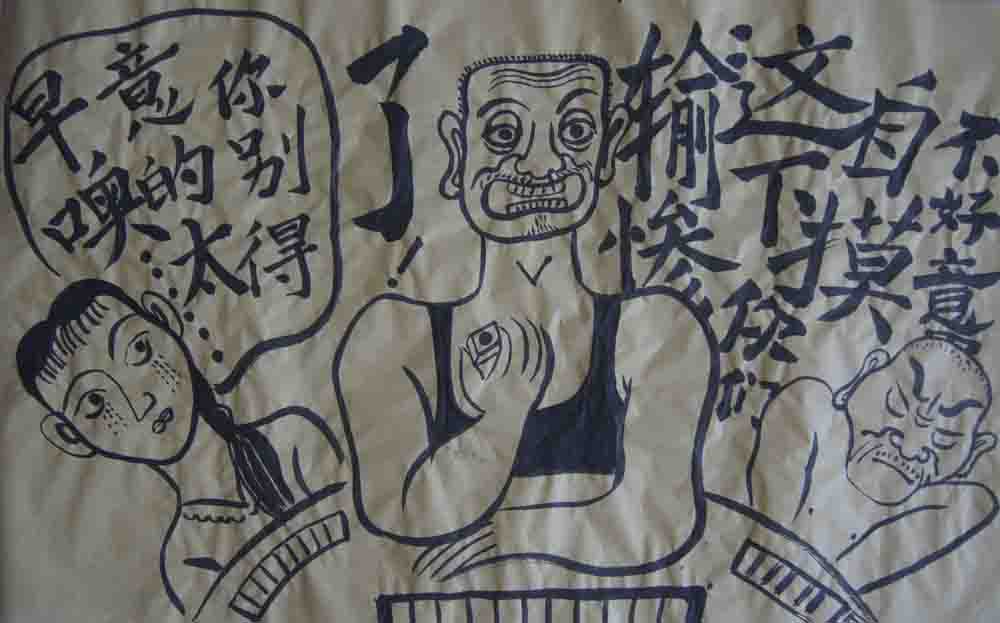 不好意
自摸
这下你们
输惨
了!
你别得
意的太
早噢......